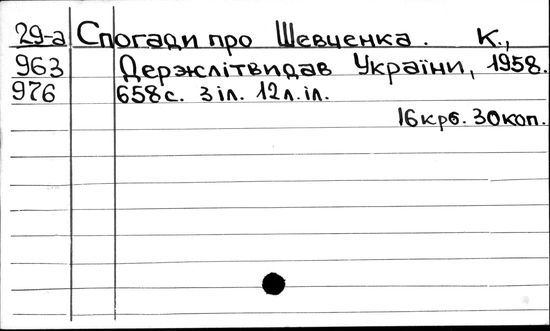 29-а Спогади про Шевченка. К.,
963 Держлітвидав України, 1958.
976 658с. 3 іл. 12 л. іл.
16 крб. 30 коп.